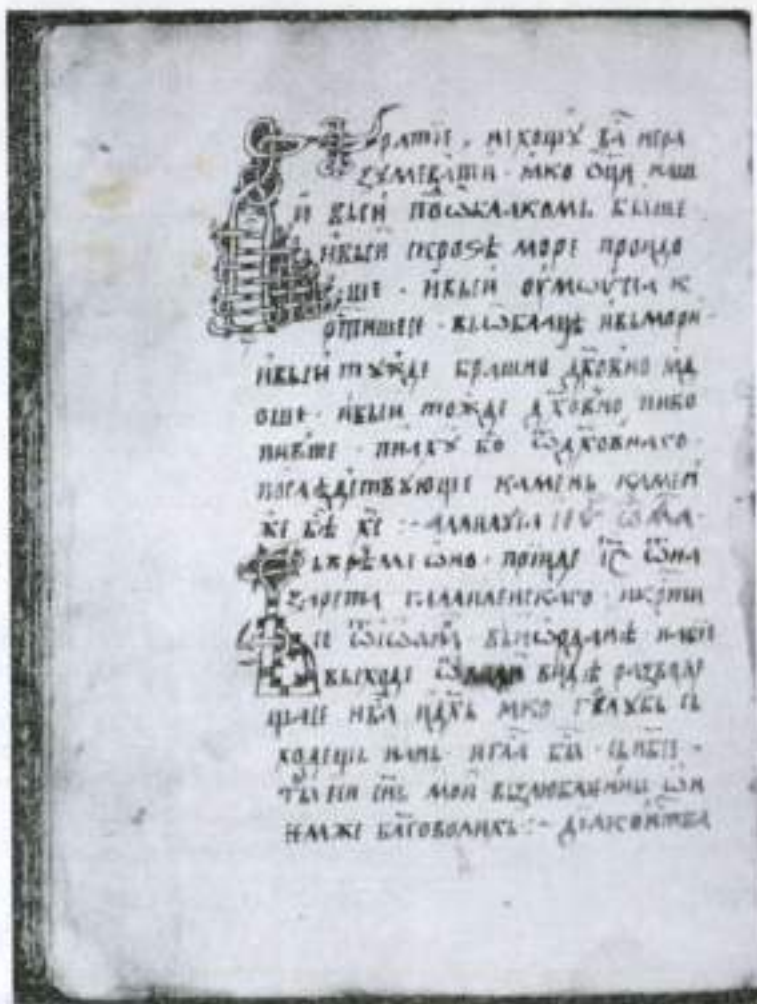 Братїе, не хощу ва нера
ꙁꙋмевати · ꙗко оци наш
и вьси по ѡблакомь быше
и вьси скроꙁѣ море проидо
ше · и вьси
ѡблацѣ и вь мори ·
и вьси тꙋжде брашно дх҃овно ꙗд
оше · и вьси тожде дх҃овно пиво
пивше · пиꙗхꙋ бо ѿ дх҃овнаго ·
послѣдствꙋюще камень камен
же бѣ х҃с :– алилꙋіа
Вь врѣме ѡно · поиде і҃с ѿ на
ꙁарета галилеискаго · и крс҃ти
се ѿ іѡана вь іѡрданѣ
вьходе видѣ раꙁводе
щесе нб҃са и дх҃ь ꙗко голꙋбь сь
ходещь нань · и глас бы · сь нб҃си ·
ты еси сн҃ь мои вьꙁлюблнни ѡ н
емже благоволихь :–